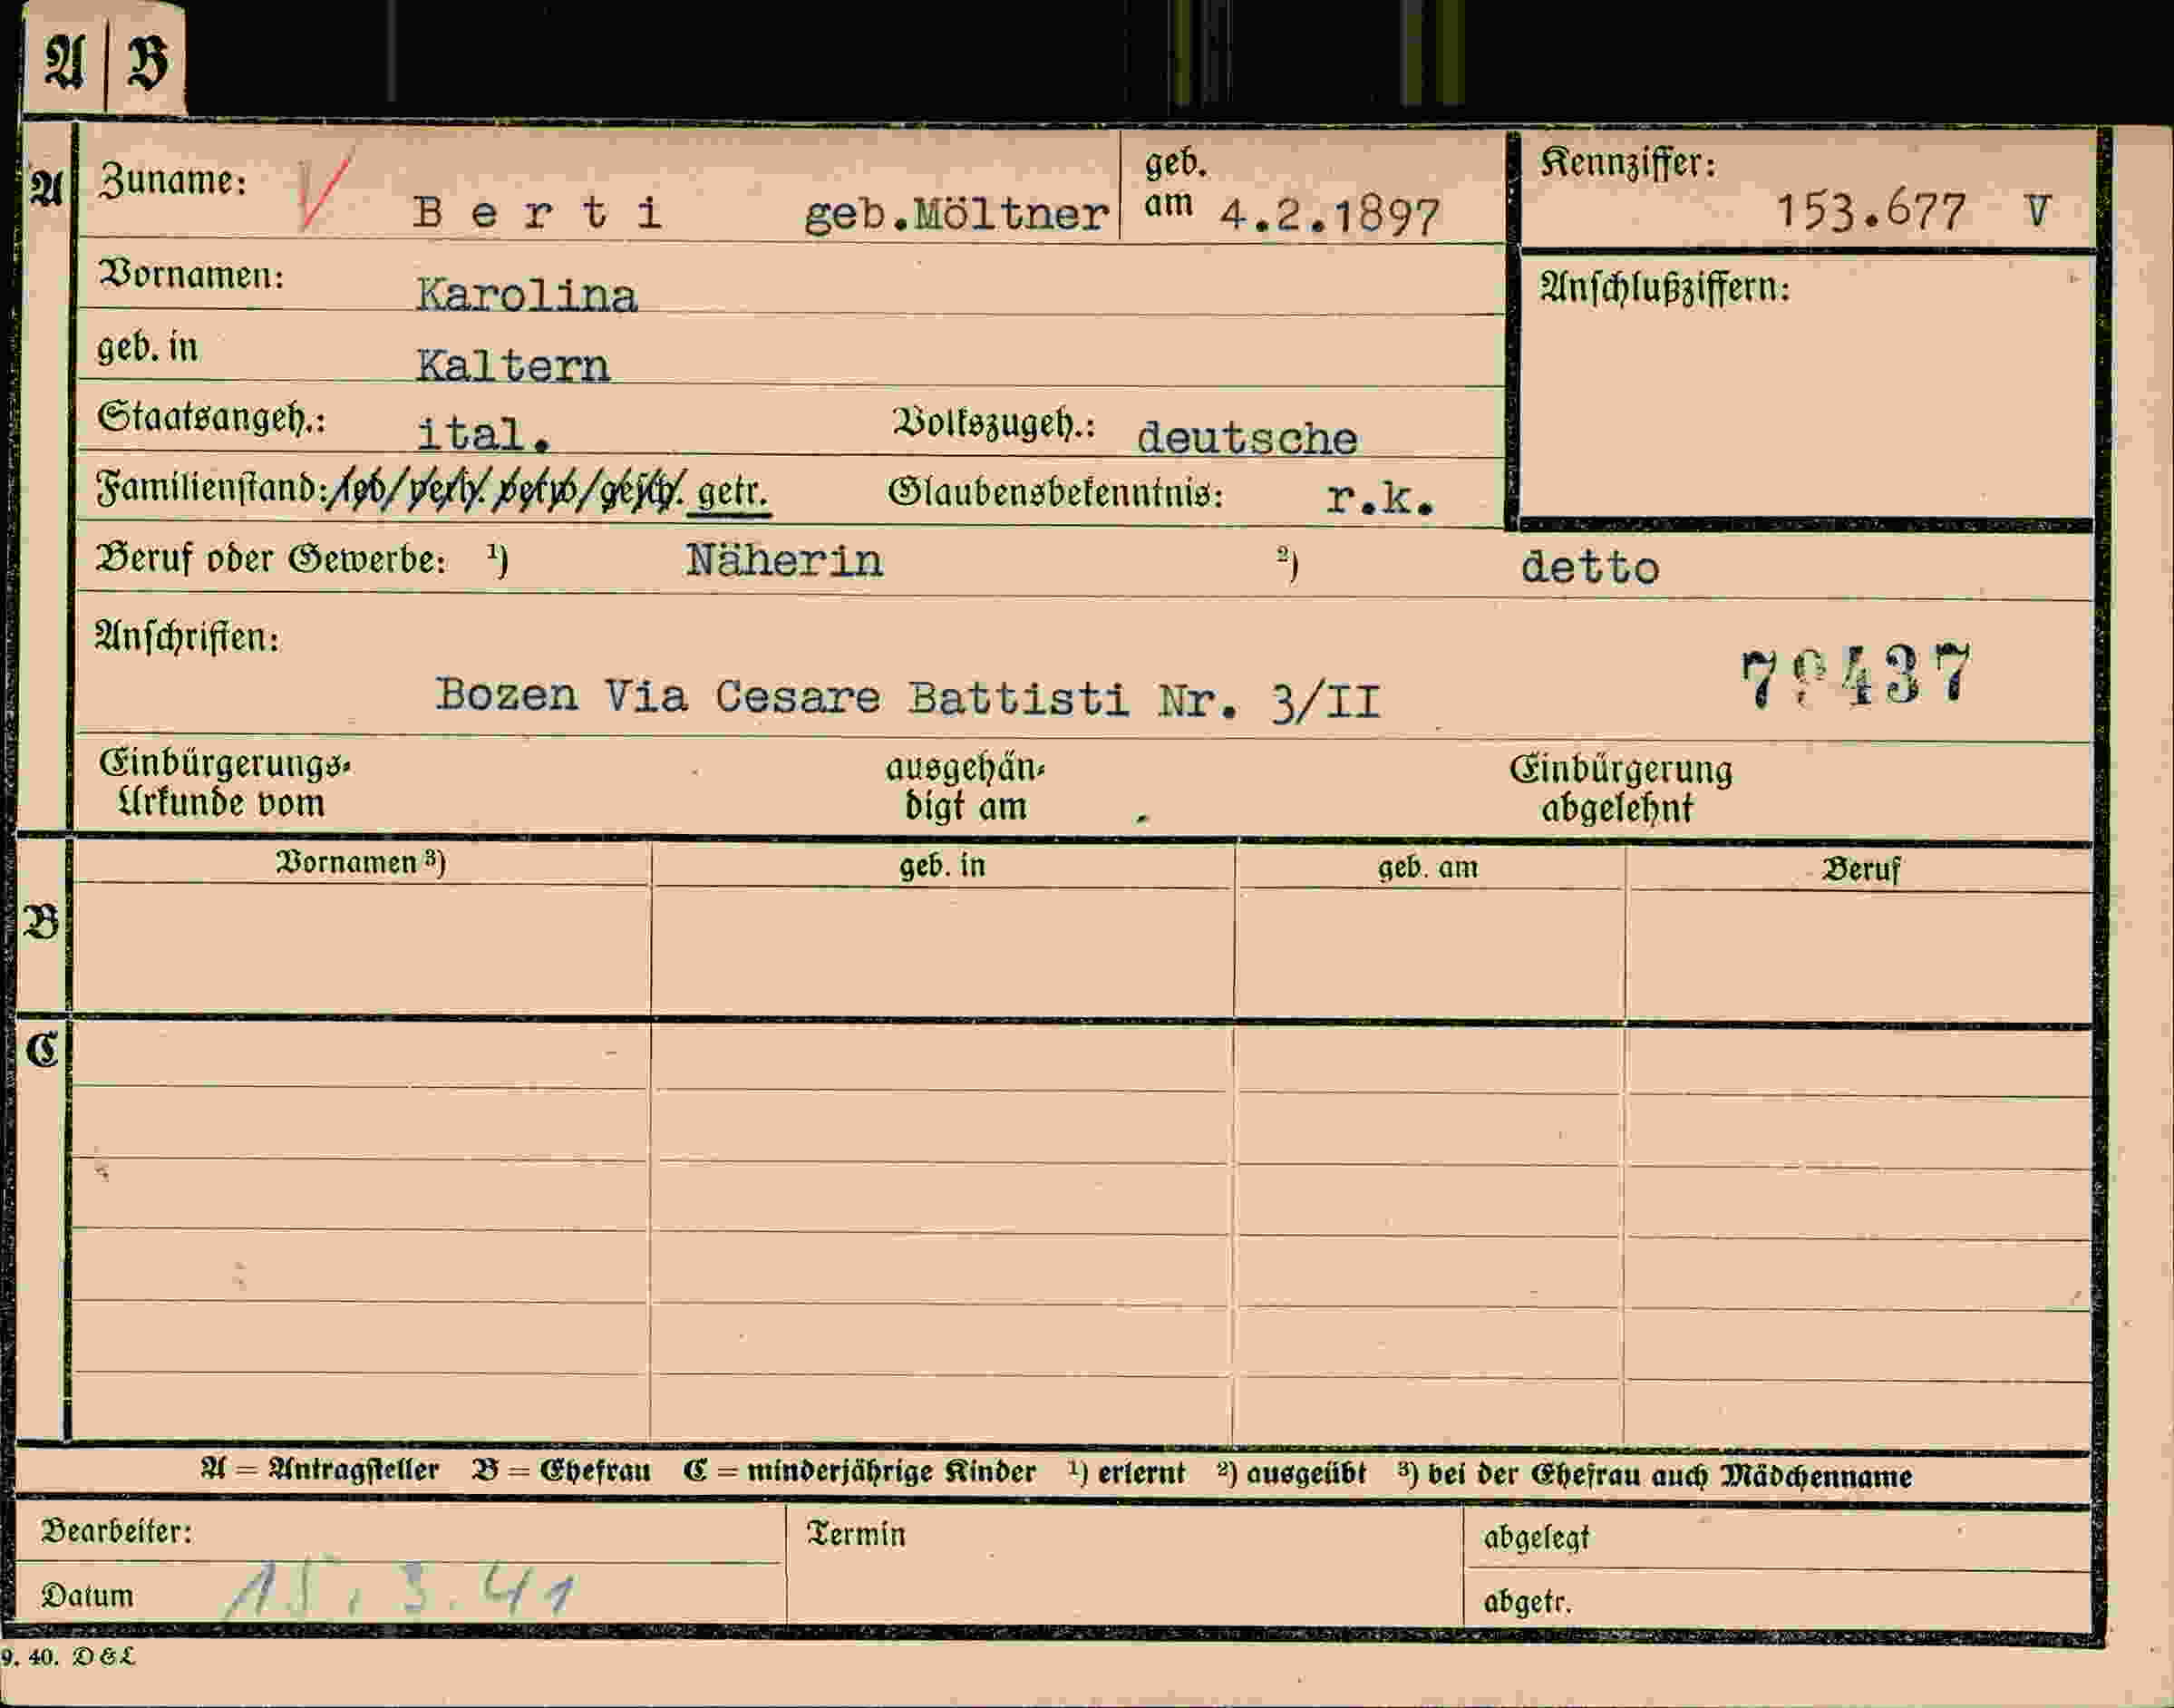 A B
A Zuname: Berti geb.Möltner geb. am 4.2.1897 Kennziffer: 153.677 V
Vornamen: Karolina
Anschlußziffern:
geb. in Kaltern
Staatsangeh.: ital. Volkszugeh.: deutsche
Familienstand: led/verh. verw/gesch. getr. Glaubensbekenntnis: r.k.
Beruf oder Gewerbe: 1) Näherin 2) detto
Anschriften:
Bozen Via Cesare Battisti Nr. 3/II
Einbürgerungs- ausgehän- Einbürgerung
Urkunde vom digt am abgelehnt
Vornamen 3) geb. in geb. am Beruf
B
C
A = Antragsteller B = Ehefrau C = minderjährige Kinder 1) erlernt 2) ausgeübt 3) bei der Ehefrau auch Mädchenname
Bearbeiter: Termin abgelegt
Datum 15.3.41 abgetr.
9. 40. D&L